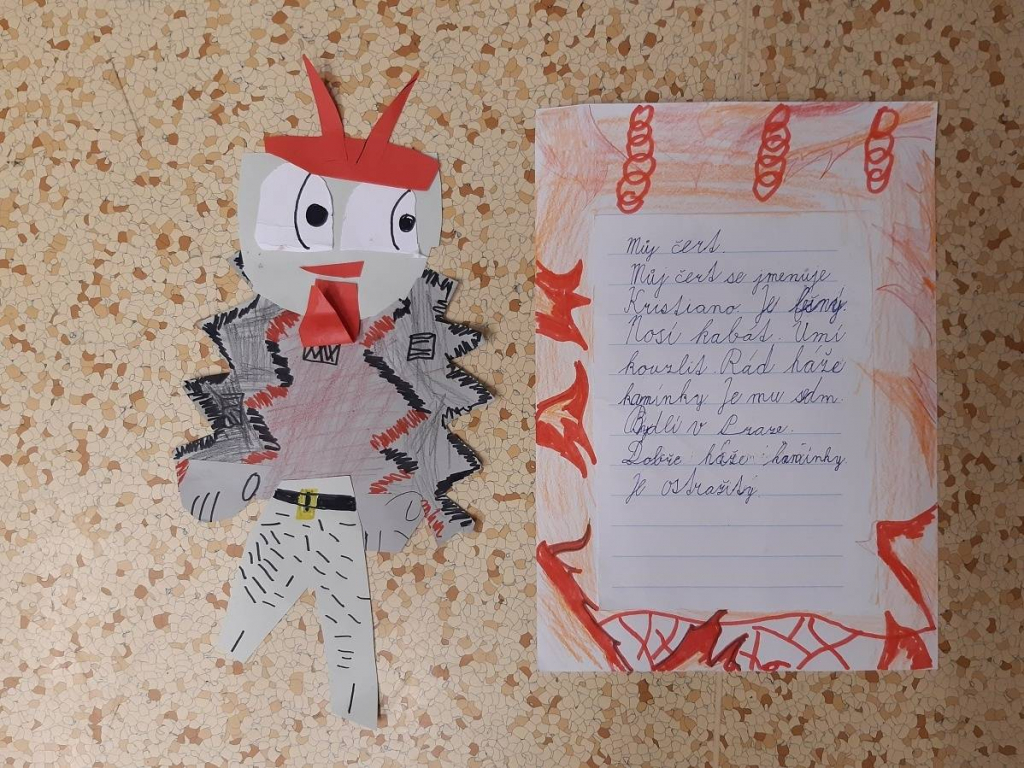 Můj čert.
Můj čert se jmenuje
Kristiano. Je lesný.
Nosí kabát. Umí
kouzlit. Rád háže
kamínky. Je mu sdm.
Bydlí v Praze.
Dobře háže kamínky
Je ostražitý.